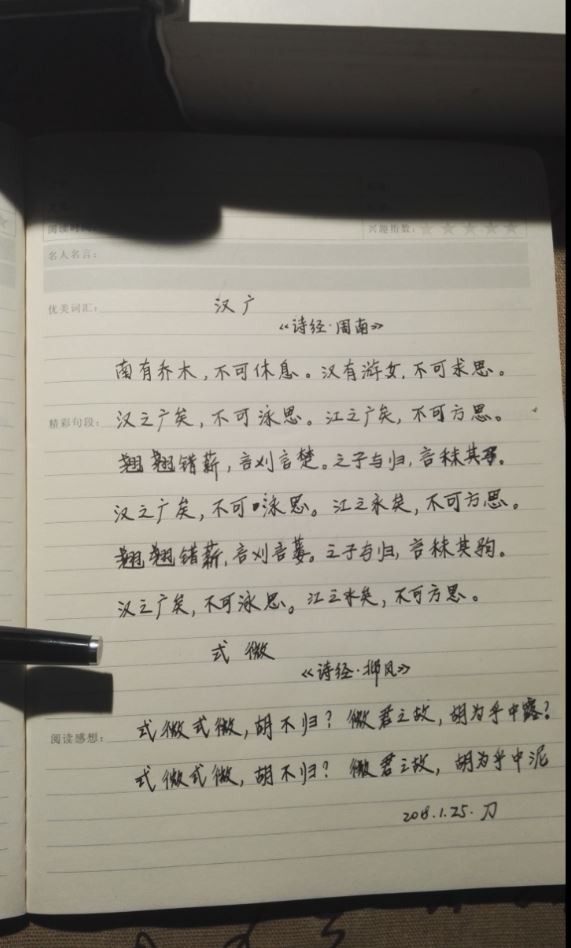 阅读时间:
兴趣指数:
名人名言:
优美词汇:
汉广
《诗经·周南》
南有乔木,不可休息。汉有游女,不可求思。
精彩句段:
汉之广矣,不可泳思。江之广矣,不可方思。
翘翘错薪,言刈言楚。之子与归,言秣其
汉之广矣,不可泳思。江之永矣,不可方思。
翘翘错薪,言刈言蒌。之子与归,言秣其驹。
汉之广矣,不可泳思。江之永矣,不可方思。
式微
《诗经·邶风》
阅读感想:
式微式微,胡不归?微君之故,胡为乎中露?
式微式微,胡不归?微君之故,胡为乎中泥
2018.1.25.刀